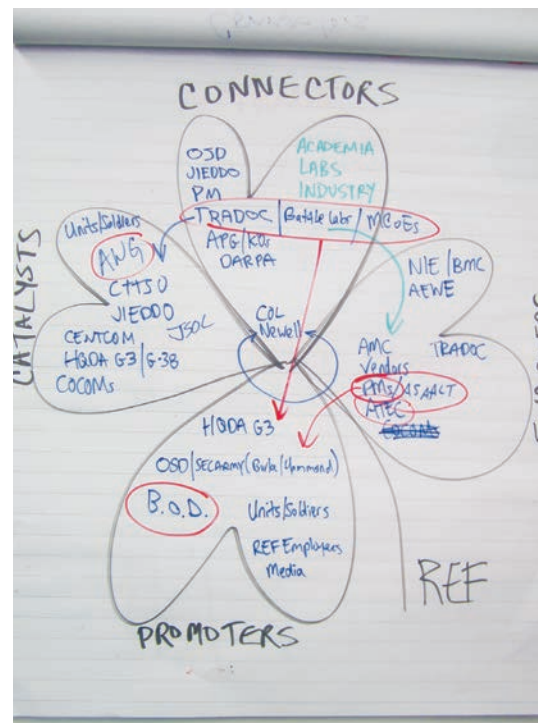 CONNECTORS
OSD
JIEDDO
PM
ACADEMIA
LABS
INDUSTRY
TRADOC / Battle Labs / MCoEs
APG / KOs
DARPA
CATALYSTS
Units/Soldiers
AWG
JIEDDO
JSOC
CENTCOM
HQDA G3 / G-38
COCOMs
COL
Newell
NIE / BMC
AEWE
TRADOC
AMC
Vendors
PMs / ASAALT
ATEC
COCOMs
HQDA G3
OSD / SECARMY
B.O.D.
Units/Soldiers
REF Employees
Media
PROMOTERS
REF